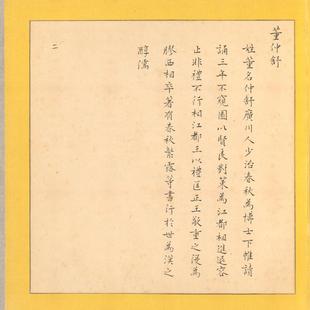 董仲舒
姓董名仲舒廣川人少治春秋為博士下帷講
誦三年不窺園以賢良對策為江都相進退容
止非禮不行相江都王以禮匡正王敬重之後為
膠西相卒著有春秋繁露等書行於世為漢之
醇儒
二